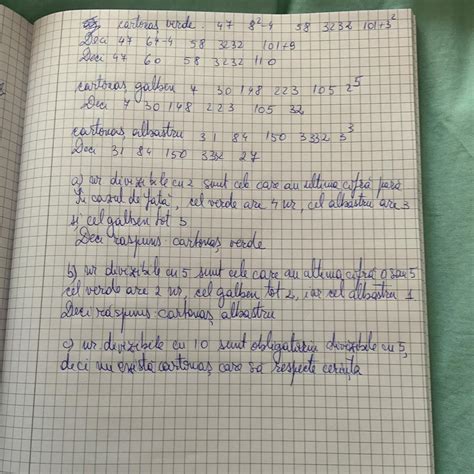 cartonas verde : 47 8²-4 58 3232 101+3²
Deci 47 64-4 58 3232 101+9
Deci 47 60 58 3232 110
cartonas galben 7 30 148 223 105 2⁵
Deci 7 30 148 223 105 32
cartonas albastru 31 84 150 3332 3³
Deci 31 84 150 3332 27
a) nr divizibile cu 2 sunt cele care au ultima cifră pară
În cazul de față, cel verde are 4 nr, cel albastru are 3
și cel galben tot 3
Deci răspuns cartonaș verde
b) nr divizibile cu 5 sunt cele care au ultima cifră 0 sau 5
cel verde are 2 nr, cel galben tot 2, iar cel albastru 1
Deci răspuns cartonaș albastru
c) nr divizibile cu 10 sunt obligatoriu divizibile cu 5,
deci nu există cartonaș care să respecte cerința